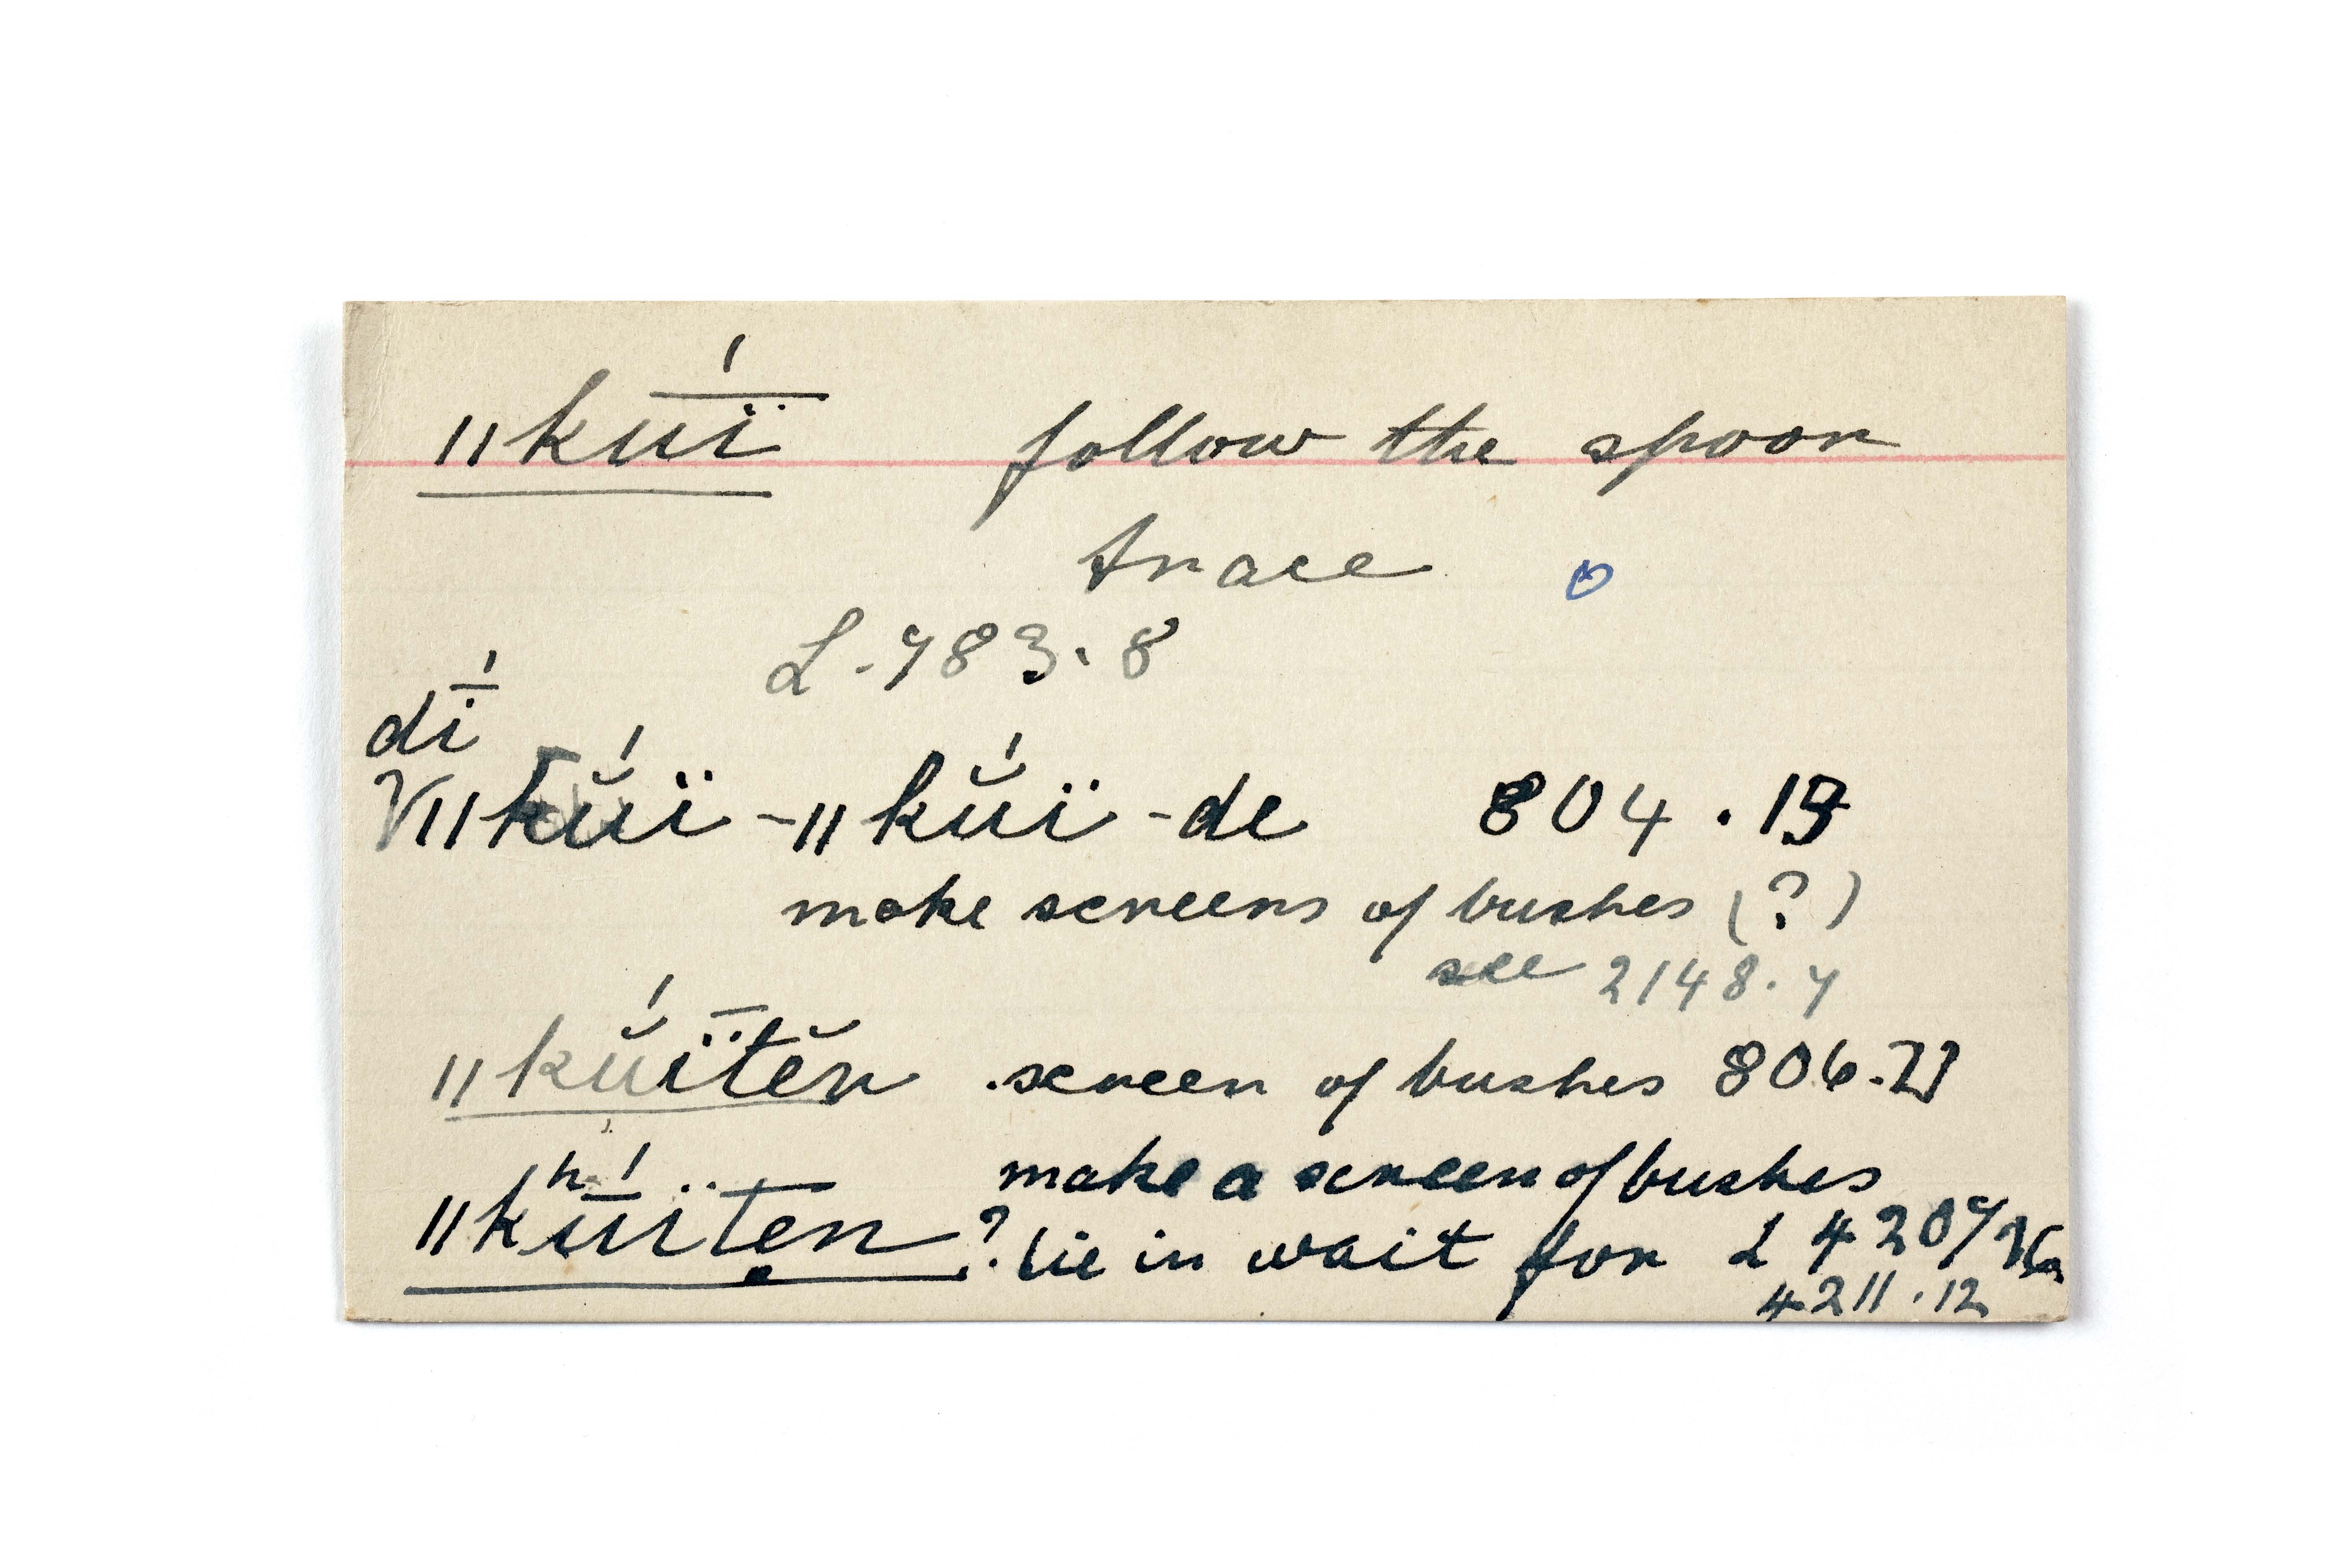 ǁkū́ï follow the spoor
trace
L. 783. 8
dī́
ǁkŭ́ï-ǁkŭ́ï-de 804. 13
make screens of bushes (?)
see 2148. 7
ǁkŭ́ï̄tĕn screen of bushes 806.
h make a screen of bushes
ǁkū́ïtẹ̄n ? lie in wait for L 4207
4211. 12